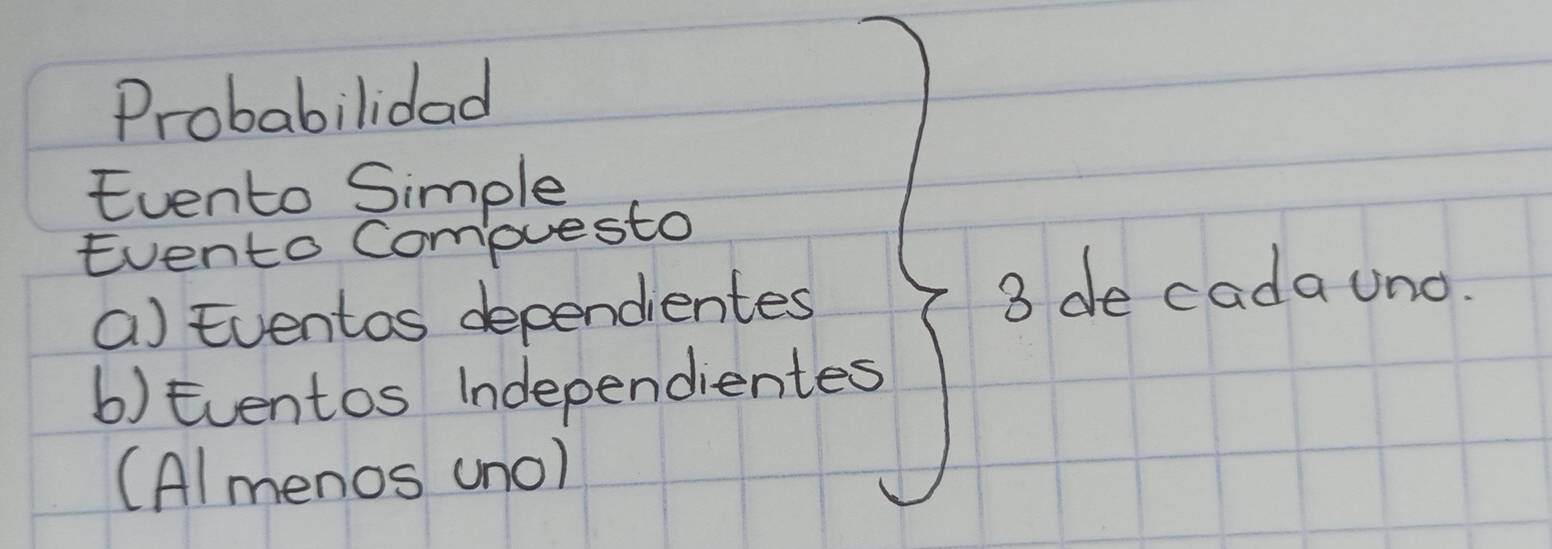 Probabilidad
Evento Simple
Evento Compuesto
a) Eventos dependientes
3 de cada uno.
b) Eventos Independientes
(Al menos uno)